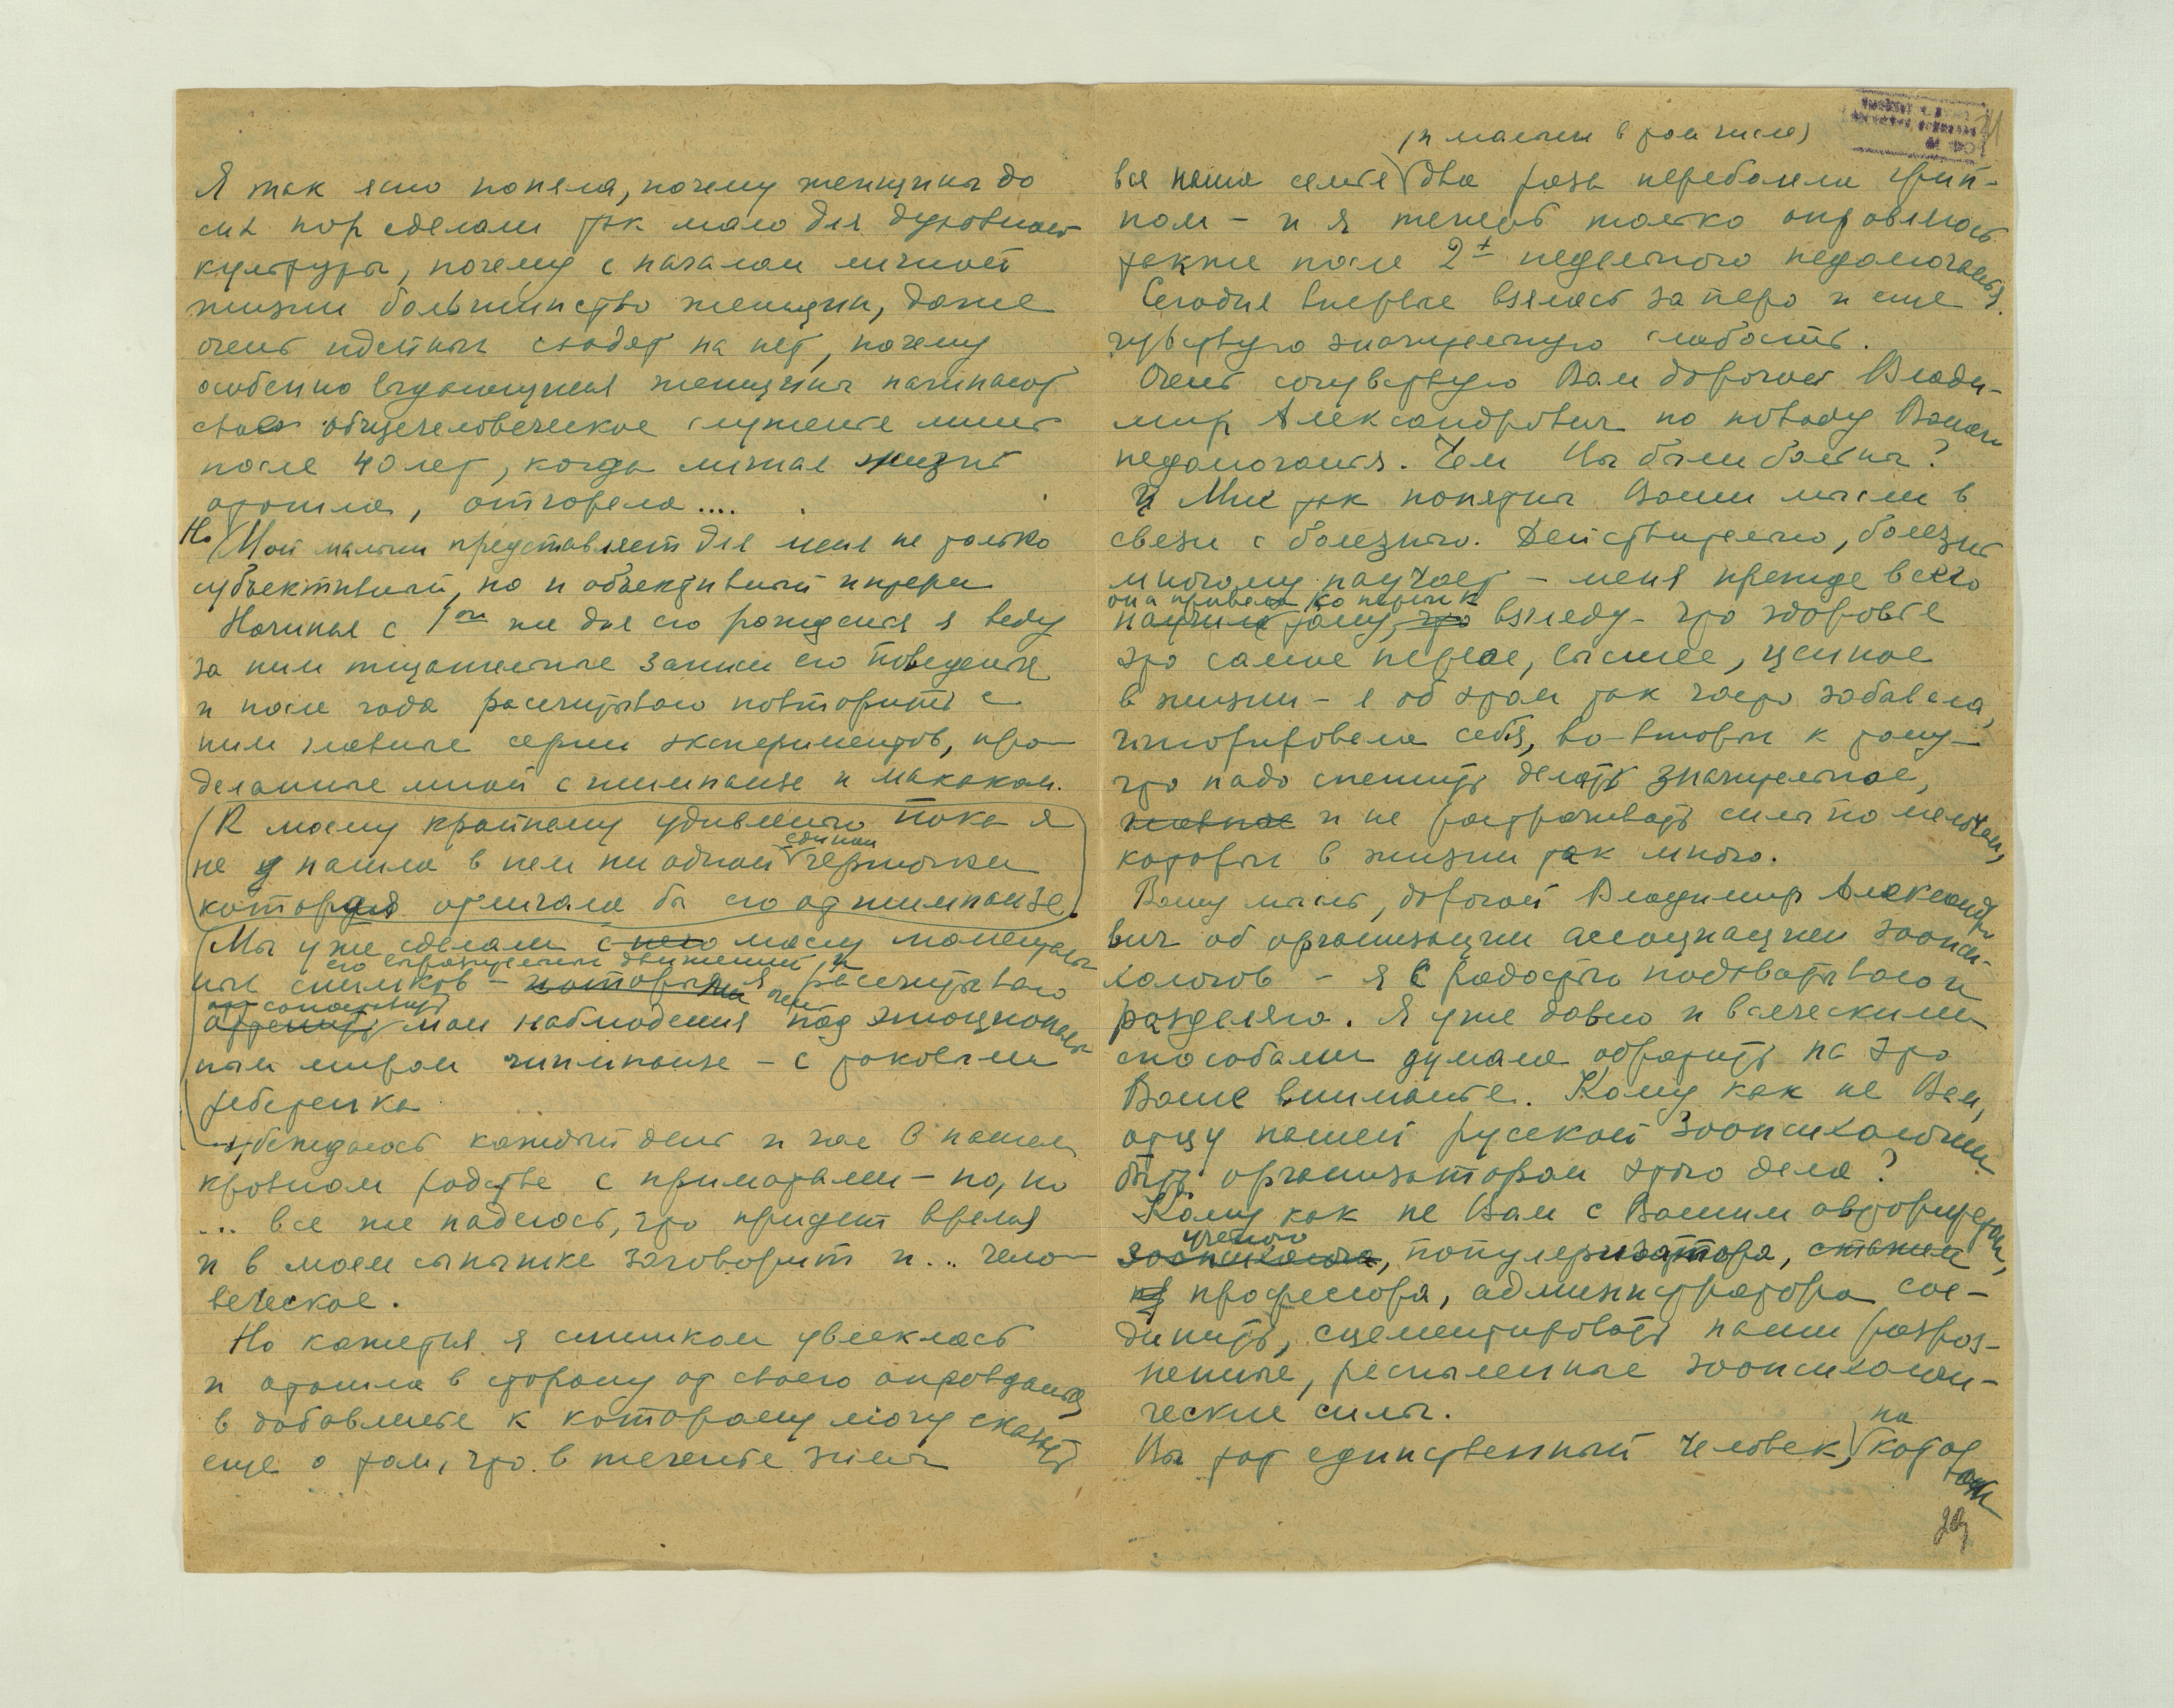 Я так ясно поняла, почему женщины до
сих пор сделали так мало для духовной
культуры, почему с началом личной
жизни большинство женщин, даже
очень идейных сходят на нет, почему
особенно выдающиеся женщины начинают
свое общечеловеческое служение лишь
после 40 лет, когда личная жизнь
отошла, отгорела....
Но Мой мальчик представляет для меня не только
субъективный, но и объективный интерес
Начиная с 1го же дня его рождения я веду
за ним тщательные записи его поведения
и после года рассчитываю повторить с
ним главные серии экспериментов, про-
деланные мной с шимпанзе и макаком.
(К моему крайнему удивлению пока я
единой
не нашла в нем ни одной черточки
которая отличала бы его от шимпанзе.)
(Мы уже сделали с него массу моменталь-
его выразительных движений, и
ных снимков – которыми я рассчитываю
сопоставить
оттенить мои наблюдения над эмоциональ-
ным миром шимпанзе – с таковыми
ребенка
убеждаюсь каждый день и час в нашем
кровном родстве с приматами – но, но
... все же надеюсь, что придет время
и в моем сынишке заговорит и... чело-
веческое.
Но кажется я слишком увлеклась
и отошла в сторону от своего оправдания,
в добавление к которому могу сказать
еще о том, что в течение зимы
(и мальчик в том числе)
вся наша семья два раза переболела грип-
пом – и я теперь только оправляюсь
также после 2х недельного недомогания.
Сегодня впервые взялась за перо и еще
чувствую значительную слабость.
Очень сочувствую Вам дорогой Влади-
мир Александрович по поводу Вашего
недомогания. Чем Вы были больны?
Мне так понятны Ваши мысли в
связи с болезнью. Действительно, болезнь
многому научает – меня прежде всего
она привела ко
научила тому, что взгляду – что здоровье
это самое первое, высшее, ценное
в жизни – я об этом так часто забывала,
игнорировала себя, во-вторых к тому –
что надо спешить делать значительное,
главное и не растрачивать силы по мелочам,
которых в жизни так много.
Вашу мысль, дорогой Владимир Александро-
вич об организации ассоциации зоопси-
хологов – я с радостью подхватываю и
разделяю. Я уже давно и всяческими
способами думала обратить на это
Ваше внимание. Кому как не Вам,
отцу нашей русской зоопсихологии
быть организатором этого дела?
Кому как не Вам с Вашим авторитетом
ученого
зоопсихолога, популяризатора, стажем,
профессора, администратора сое-
динить, сцементировать наши разроз-
ненные, распыленные зоопсихологи-
ческие силы.
на
Вы тот единственный человек, котор
29